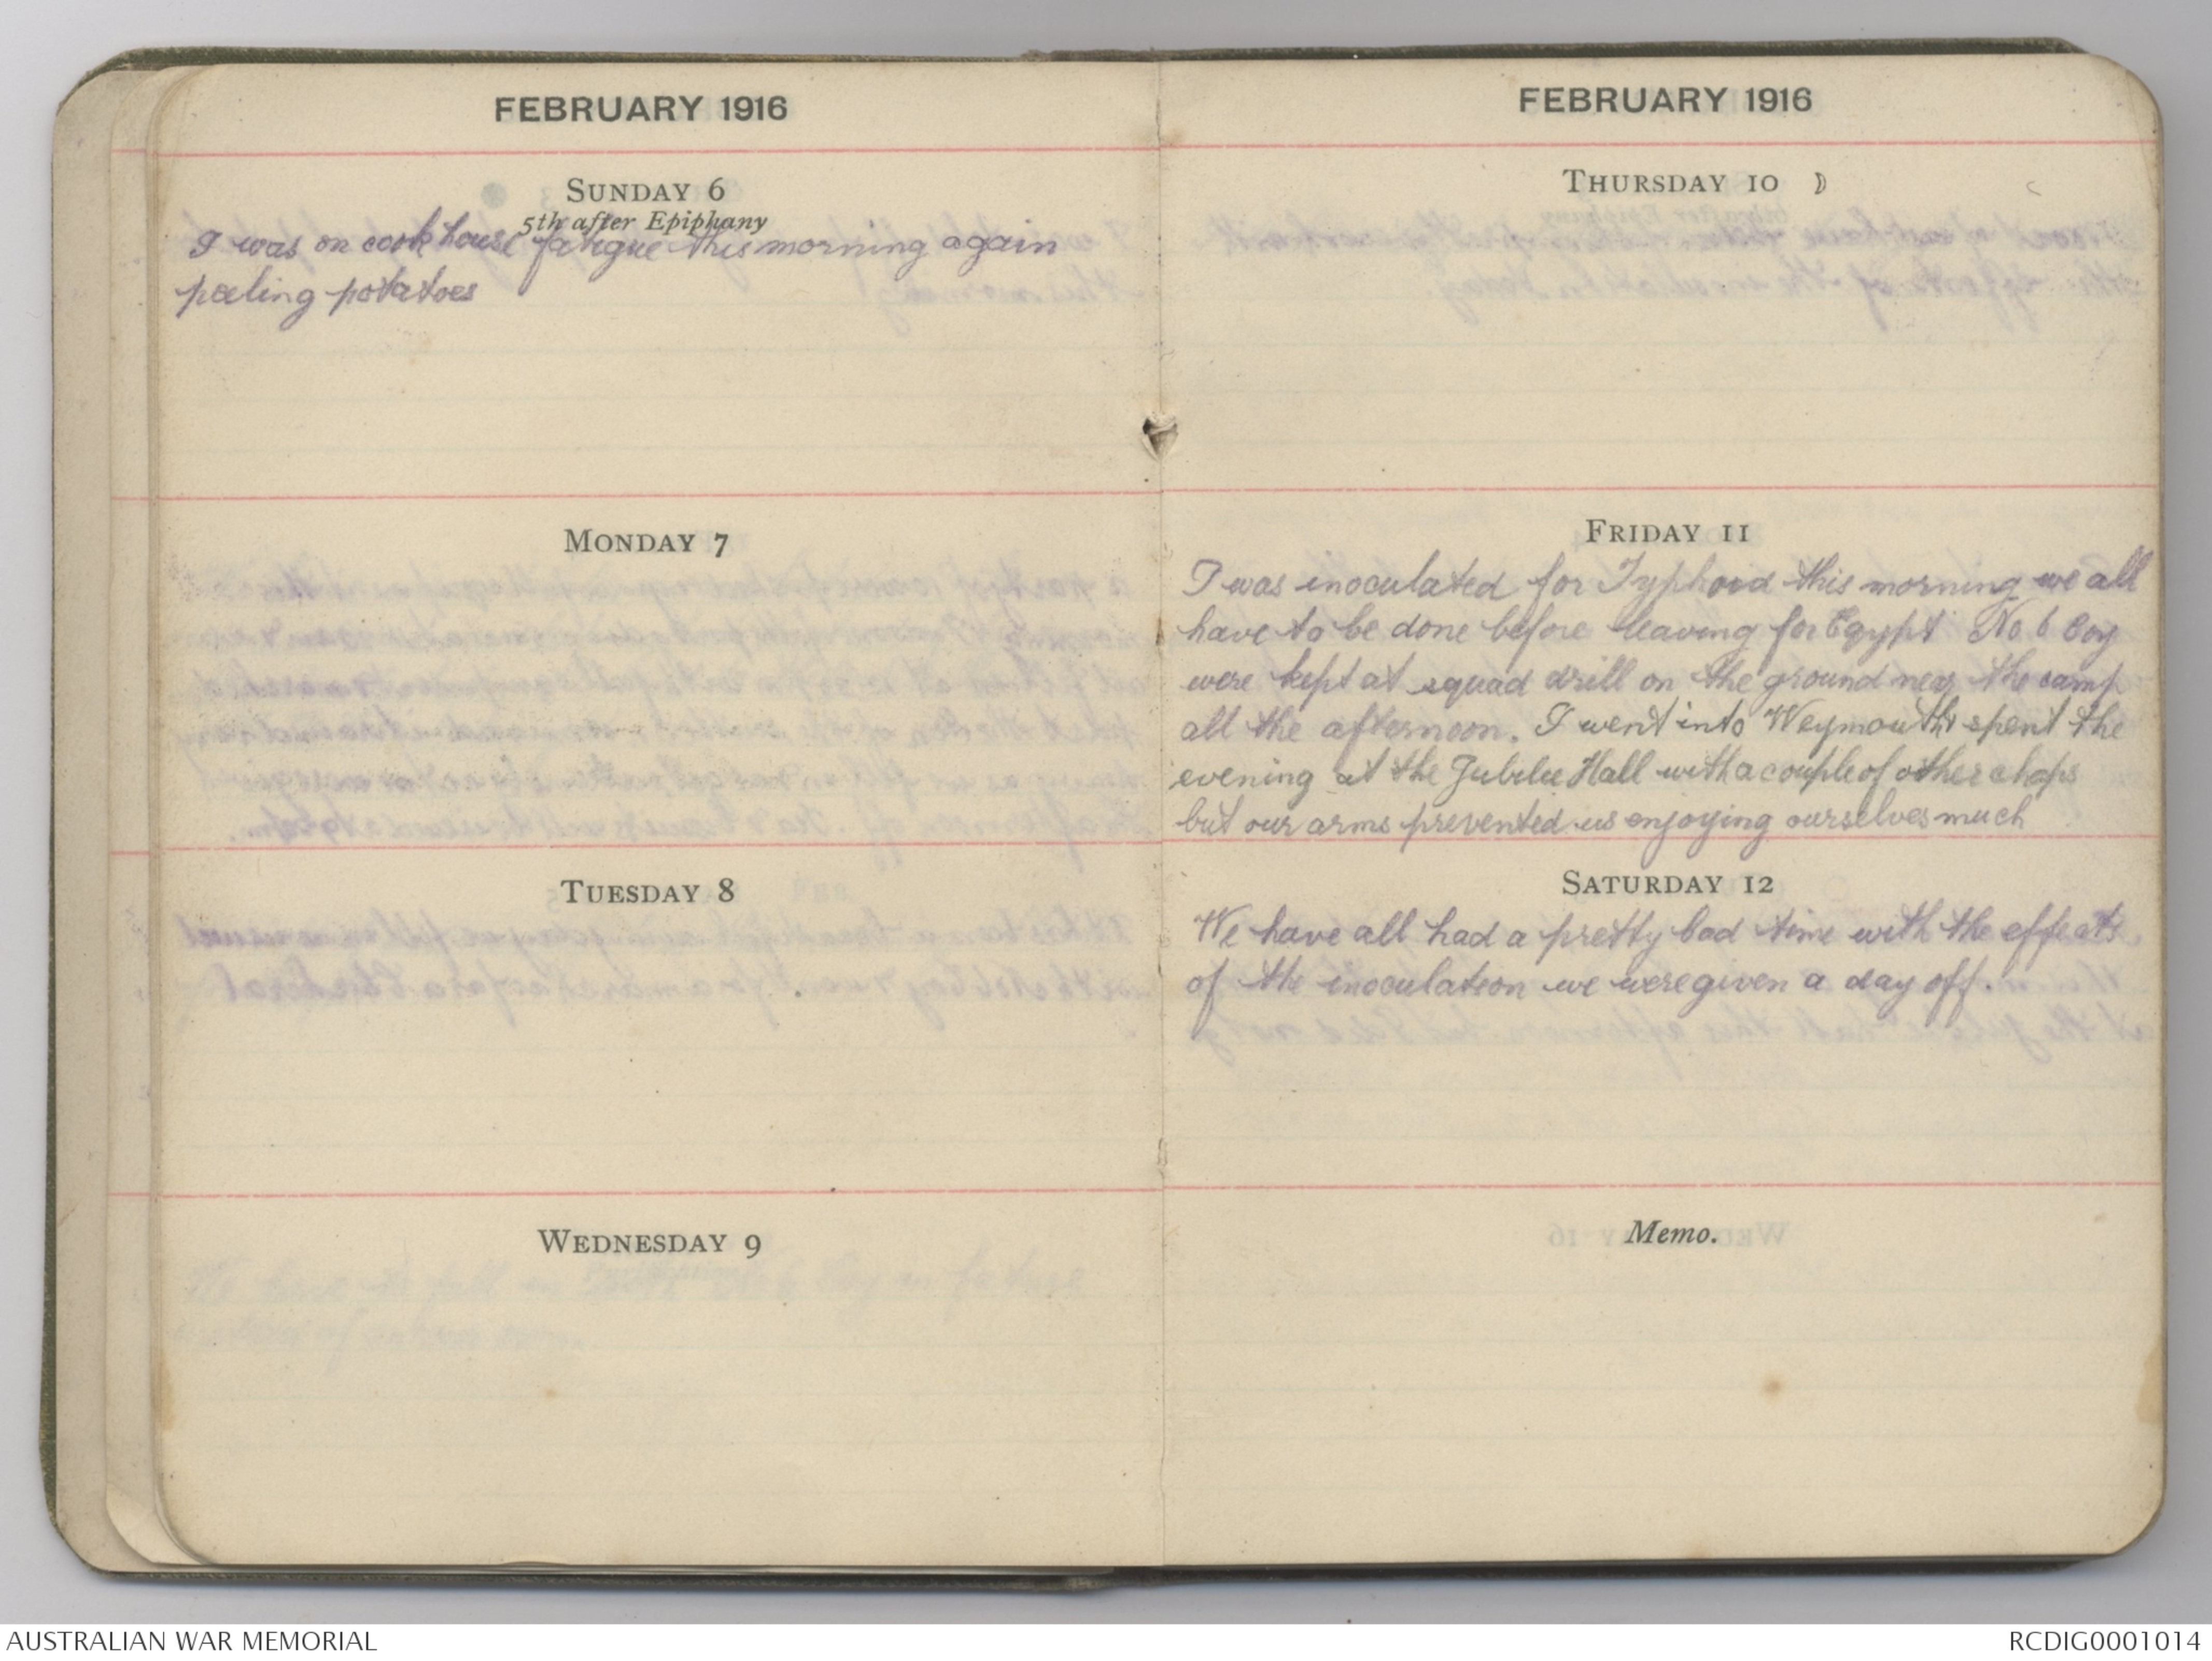 FEBRUARY 1916
SUNDAY 6
5th after Epiphany
I was on cook house fatigue this morning again
peeling potatoes
MONDAY 7
TUESDAY 8
WEDNESDAY 9
FEBRUARY 1916
THURSDAY 10
FRIDAY 11
I was inoculated for Typhoid this morning we all
have to be done before leaving for Egypt No 6 Coy
were kept at squad drill on the ground near the camp
all the afternoon. I went into Weymouth & spent the
evening at the Jubilee Hall with a couple of other chaps
but our arms prevented us enjoying ourselves much
SATURDAY 12
We have all had a pretty bad time with the effects
of the inoculation we were given a day off.
Memo.
AUSTRALIAN WAR MEMORIAL
RCDIG0001014